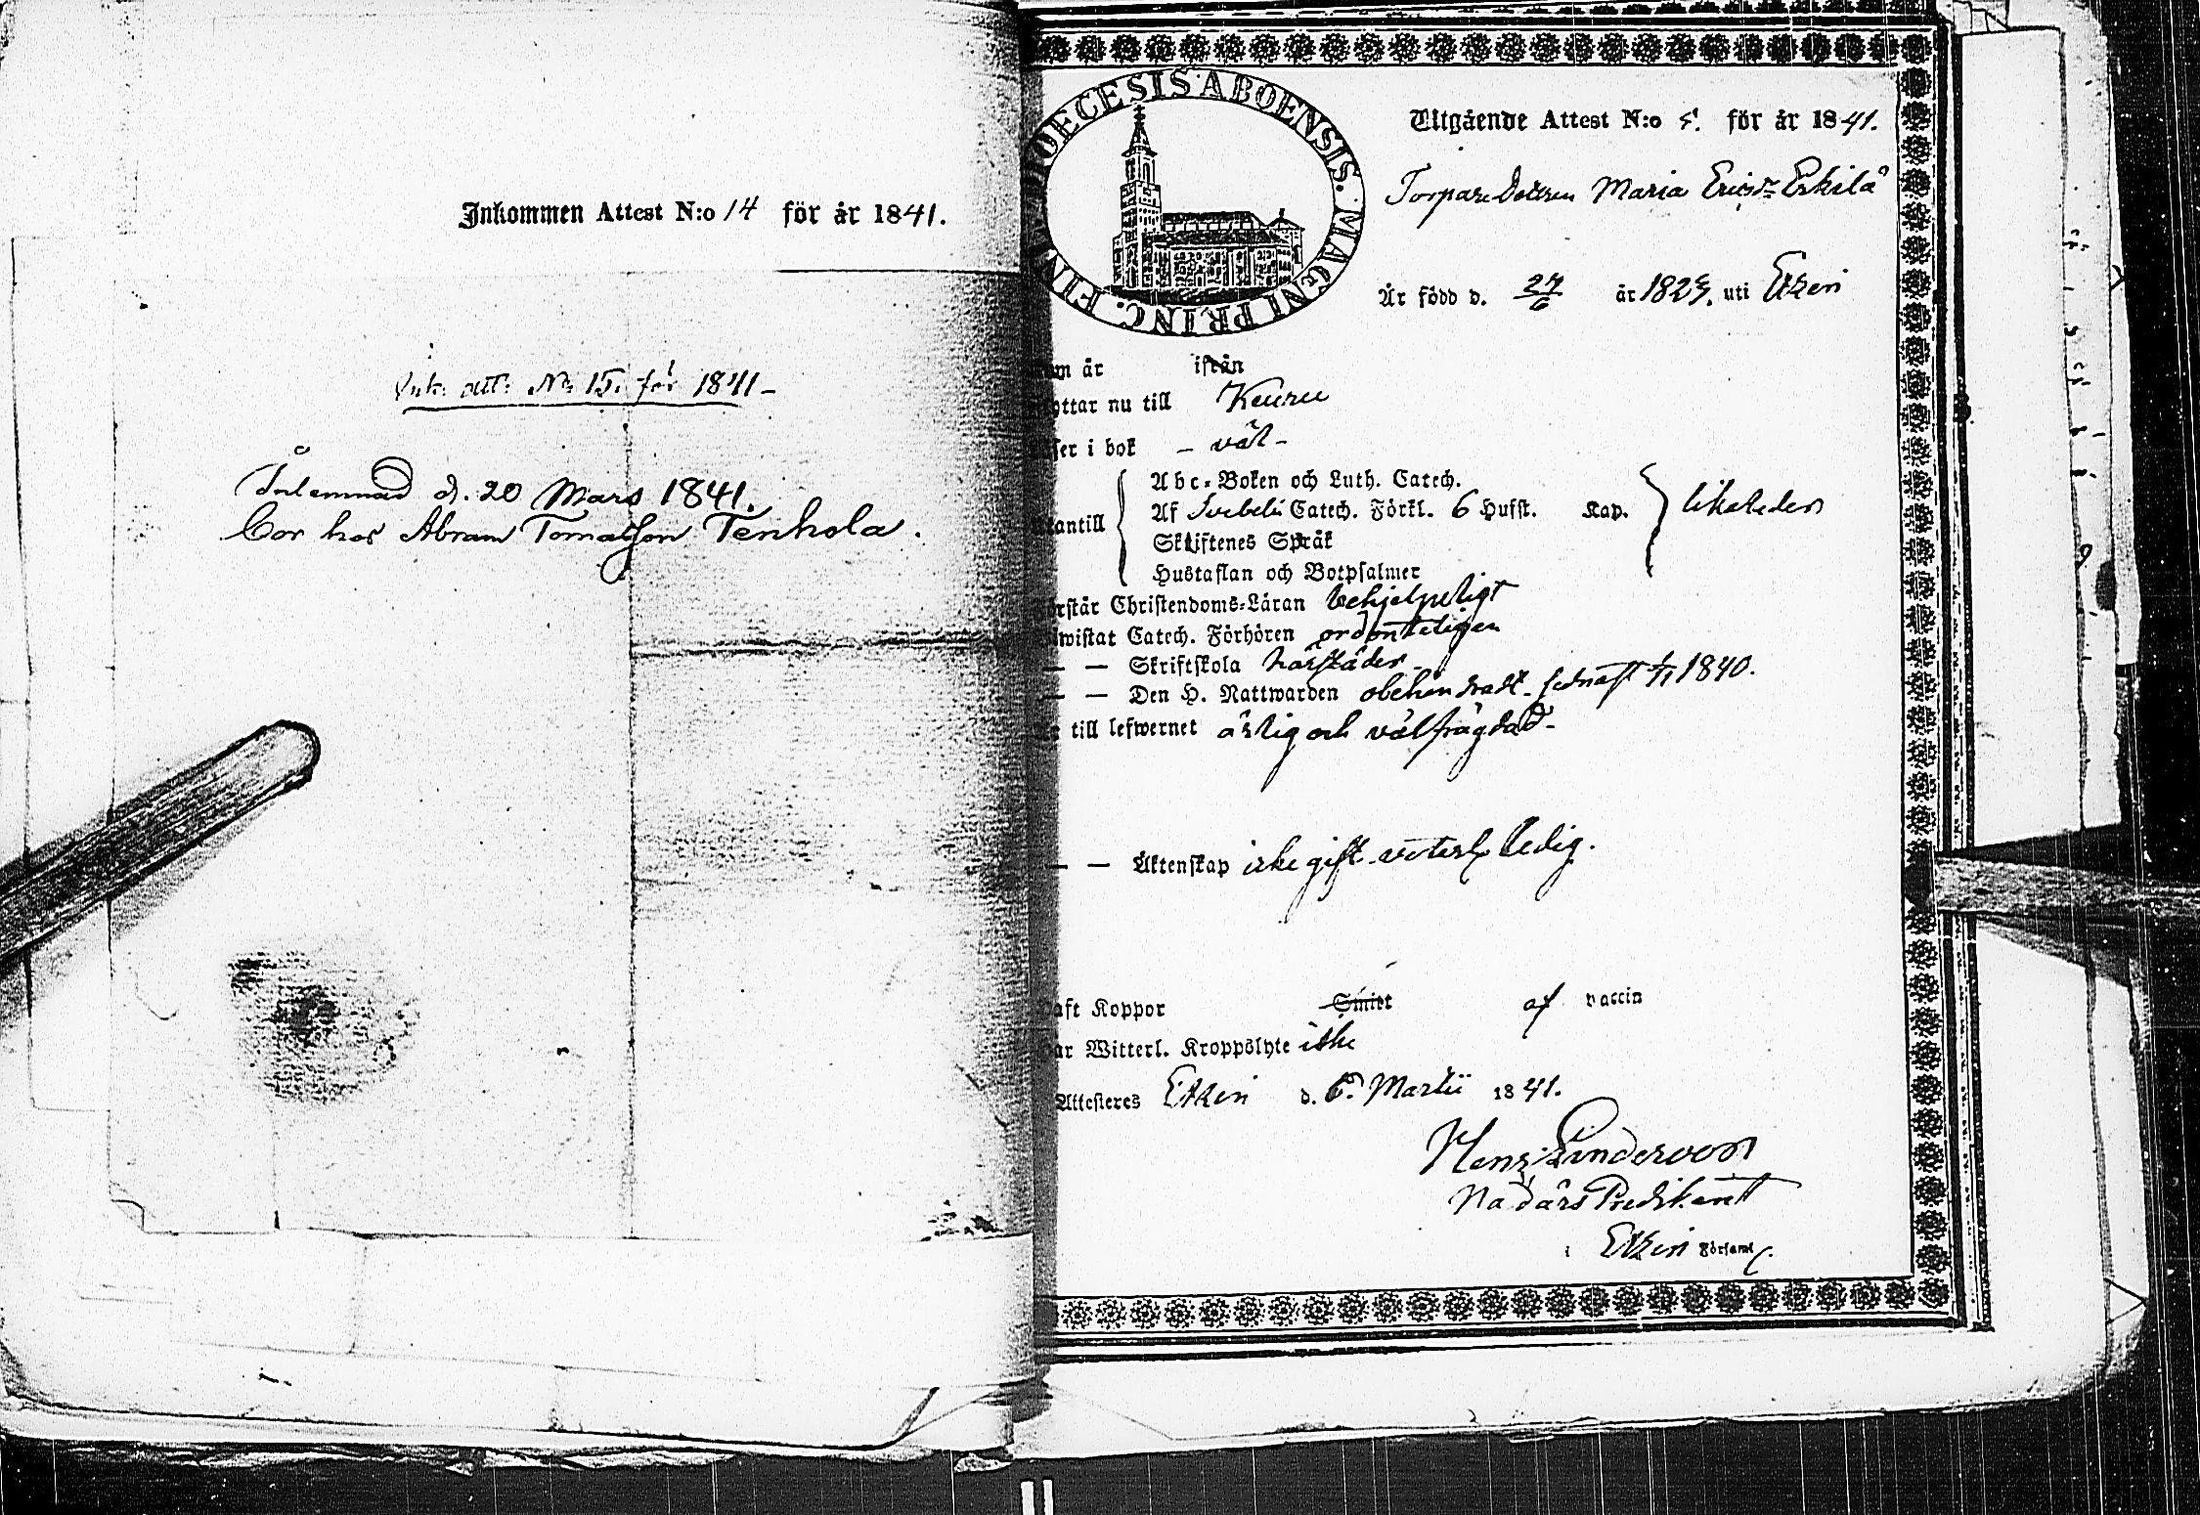 Inkommen Attest N:o 14 för år 1841.
Ink. att: No 15. för 1841 –
Inlemnad d. 20 Mars 1841.
Bor hos Abram Tomasson Tenhola.
DIOECESIS ABOENSIS. MAGNI PRINC. FIN
Utgående Attest N:o 5. för år 1841.
Torpare Dottren Maria Ericsdr Erkilä
Är född d. 27/6 år 182 uti Etzeri
är ifrån
ttar nu till Keuru
ser i bok – väl –
Abc-Boken och Luth. Catech.
Af Svebelii Catech. Förkl. 6 Hufst. Kap. likaledes
antill
Skriftenes Språk
Hustaflan och Botpsalmer
rstår Christendoms-Läran behjelpeligt
wistat Catech. Förhören ordenteligen
– – Skriftskola härstädes –
– – Den H. Nattwarden obehindradt. sednast 1/11 1840.
till lefwernet ärlig och välfrägdad –
– – Äktenskap icke gift. veterl. ledig.
aft Koppor Smitt af vaccin
ar Witterl. Kroppslyte icke
Attesteres Etzeri d. 6. Martii 1841.
Lindroos
Nådårs Predikant
i Etzeri Församl.